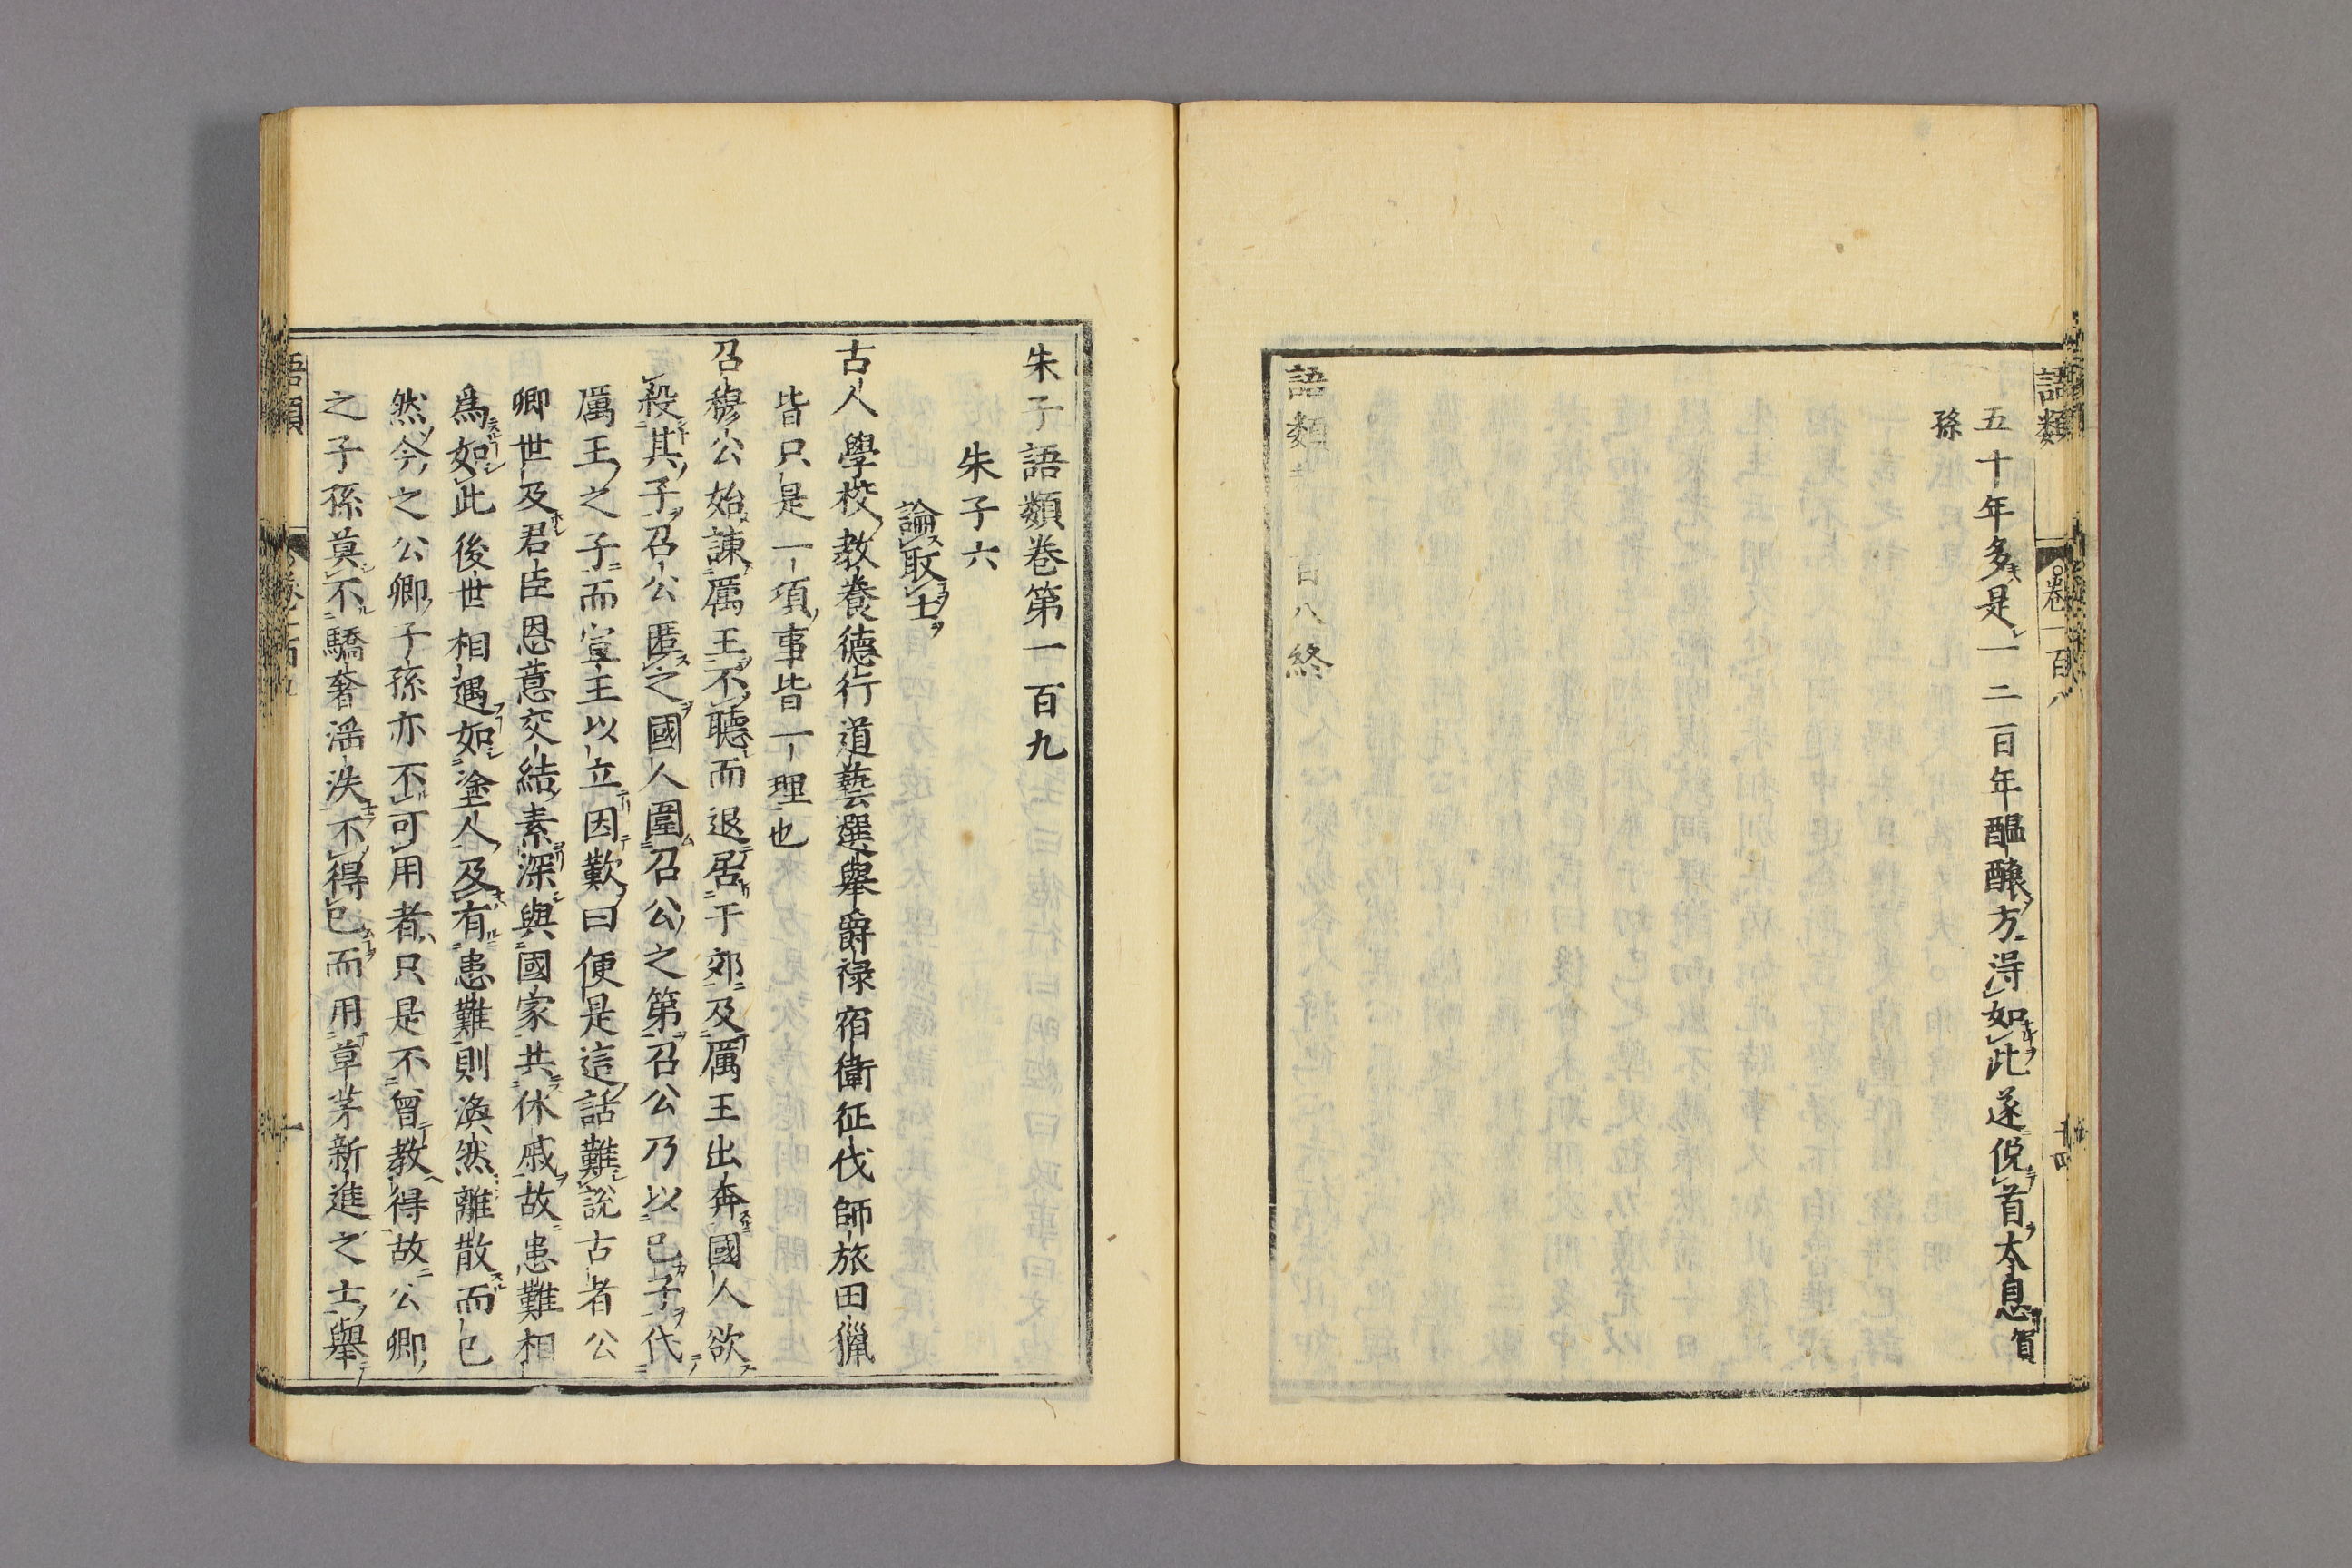 語類
卷一百八
十四
五十年多是一二百年醖釀方得如此遂俛首太息賀
孫
語類
百八終
朱子語類卷第一百九
朱子六
論取士
古人學校教養德行道藝選舉爵祿宿衛征伐師旅田獵
皆只是一項事皆一理也
召穆公始諫厲王不聽而退居于郊及厲王出奔國人欲
殺其子召公匿之國人圍召公之第召公乃以已子代
厲王之子而宣王以立因歎曰便是這話難說古者公
卿世及君臣恩意交結素深與國家共休戚故患難相
爲如此後世相遇如塗人及有患難則渙然離散而已
然今之公卿子孫亦不可用者只是不曾教得故公卿
之子孫莫不驕奢淫泆不得已而用草茅新進之士舉
語類